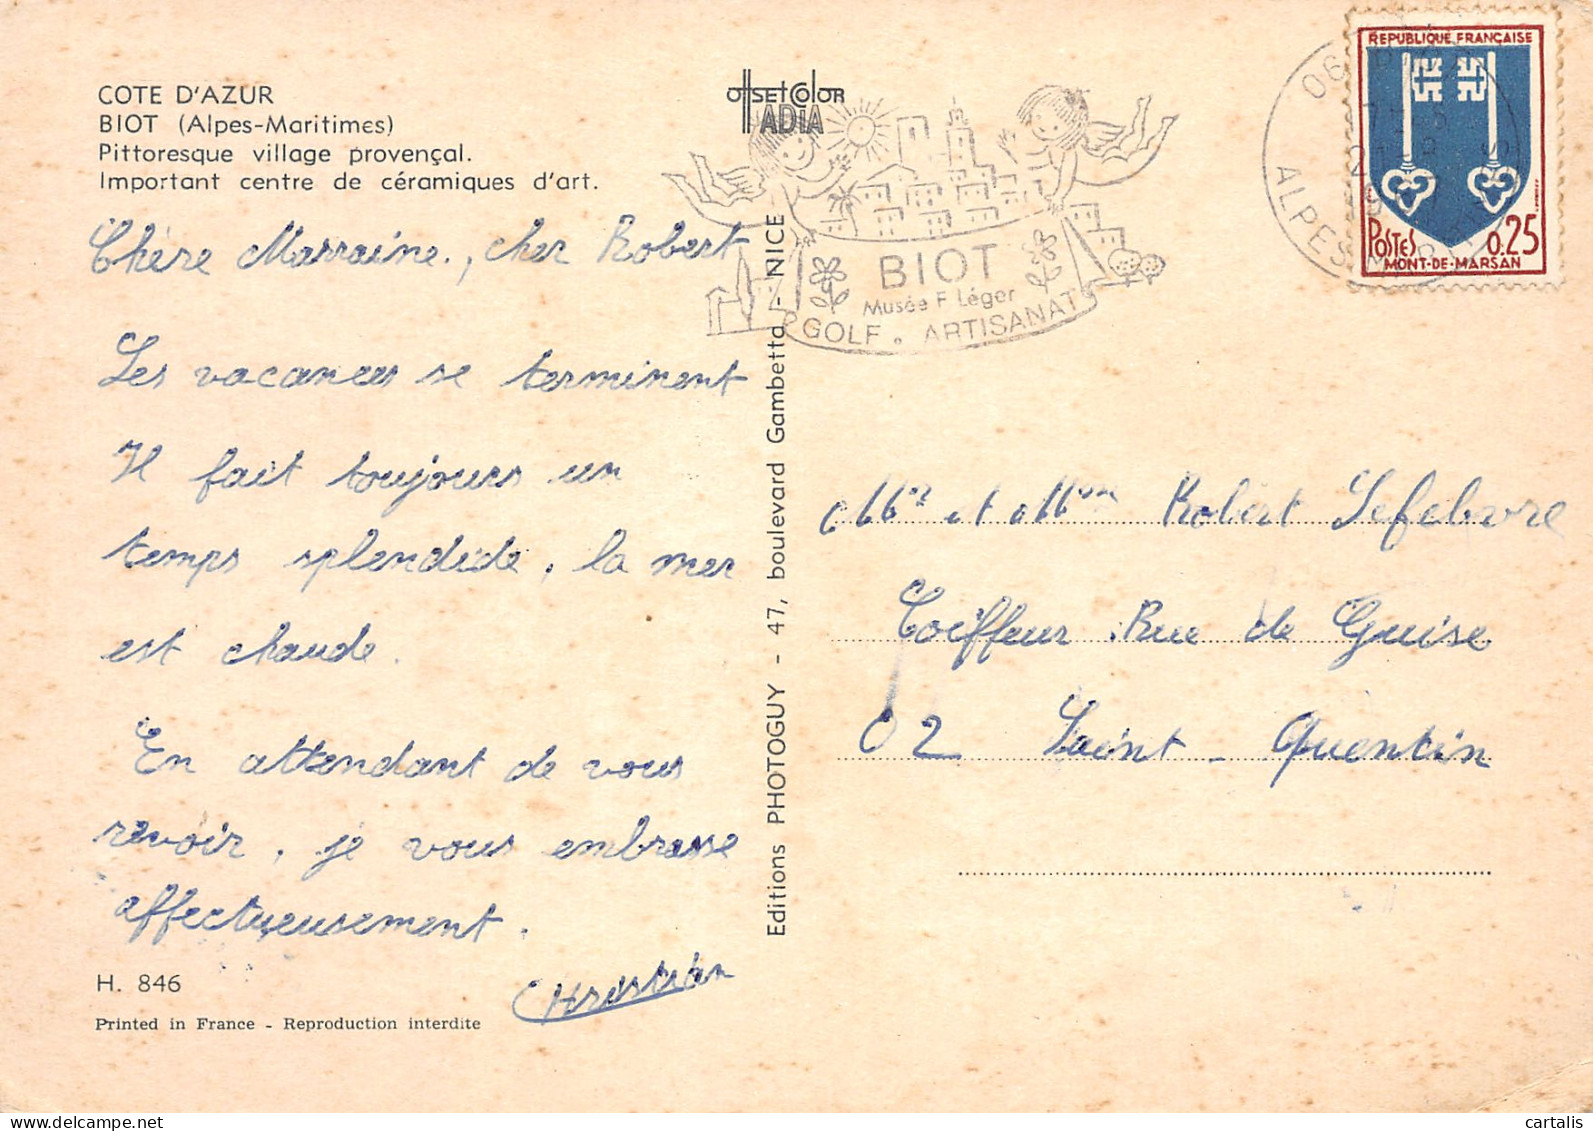 COTE D'AZUR
BIOT (Alpes-Maritimes)
Pittoresque village provençal.
Important centre de céramiques d'art.
Chère Marraine, cher Robert
Les vacances se terminent
Il fait toujours un
temps splendide, la mer
est chaude.
En attendant de vous
revoir, je vous embrasse
affectueusement.
Christian
H. 846
Printed in France - Reproduction interdite
offset Color
ADIA
Editions PHOTOGUY - 47, boulevard Gambetta - NICE
BIOT
Musée F Léger
GOLF . ARTISANAT
06
ALPES
REPUBLIQUE FRANÇAISE
POSTES 0.25
MONT-DE-MARSAN
Mr et Mme Robert Lefebvre
Coiffeur. Rue de Guise
02 Saint-Quentin
cartalis